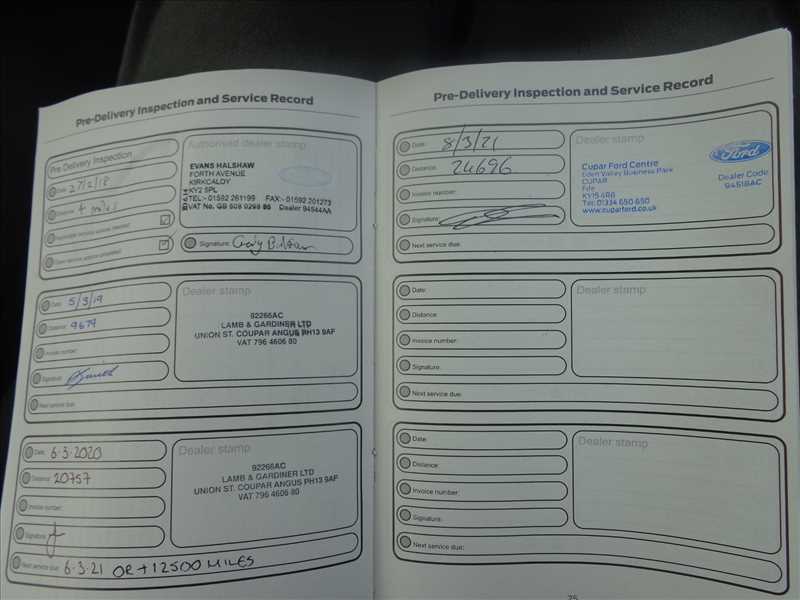 Pre-Delivery Inspection and Service Record
Pre Delivery Inspection
Date: 27/2/18
Distance: 4 miles
Authorised dealer stamp
EVANS HALSHAW
FORTH AVENUE
KIRKCALDY
KY2 5PL
TEL:- 01592 261199 FAX:- 01592 201273
VAT No. GB 608 0298 85 Dealer 94544AA
Signature:
Date: 5/3/19
Distance: 9679
Invoice number:
Signature:
Next service due:
Dealer stamp
92266AC
LAMB & GARDINER LTD
UNION ST. COUPAR ANGUS PH13 9AF
VAT 796 4606 80
Date: 6.3.2020
Distance: 20757
Invoice number:
Signature:
Next service due: 6.3.21 OR +12500 MILES
Dealer stamp
92266AC
LAMB & GARDINER LTD
UNION ST. COUPAR ANGUS PH13 9AF
VAT 796 4606 80
Pre-Delivery Inspection and Service Record
Date: 8/3/21
Distance: 24696
Invoice number:
Signature:
Next service due:
Dealer stamp
Ford
Cupar Ford Centre
Eden Valley Business Park
CUPAR
Fife
KY15 4RB
Tel: 01334 650 650
www.cuparford.co.uk
Dealer Code
94518AC
Date:
Distance:
Invoice number:
Signature:
Next service due:
Dealer stamp
Date:
Distance:
Invoice number:
Signature:
Next service due:
Dealer stamp